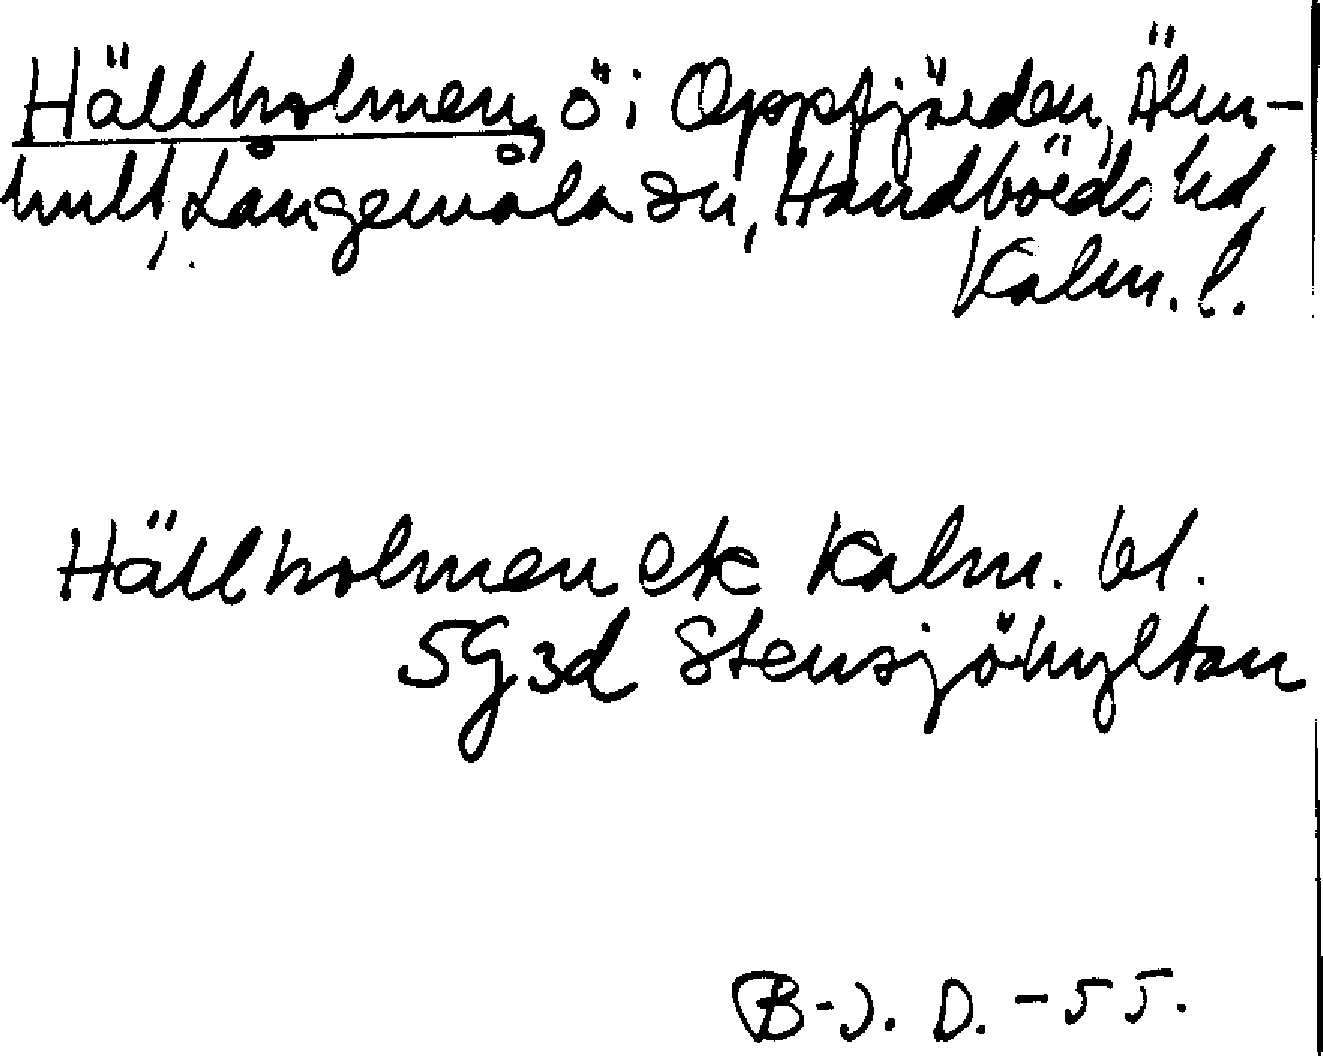 Hällholmen, ö i Oppfjärden, Älm-
hult, Långemåla sn, Handbörds hd,
Kalm. l.
Hällholmen ek Kalm. bl.
5G3d Stensjöhyltan
B-J. D. -55.